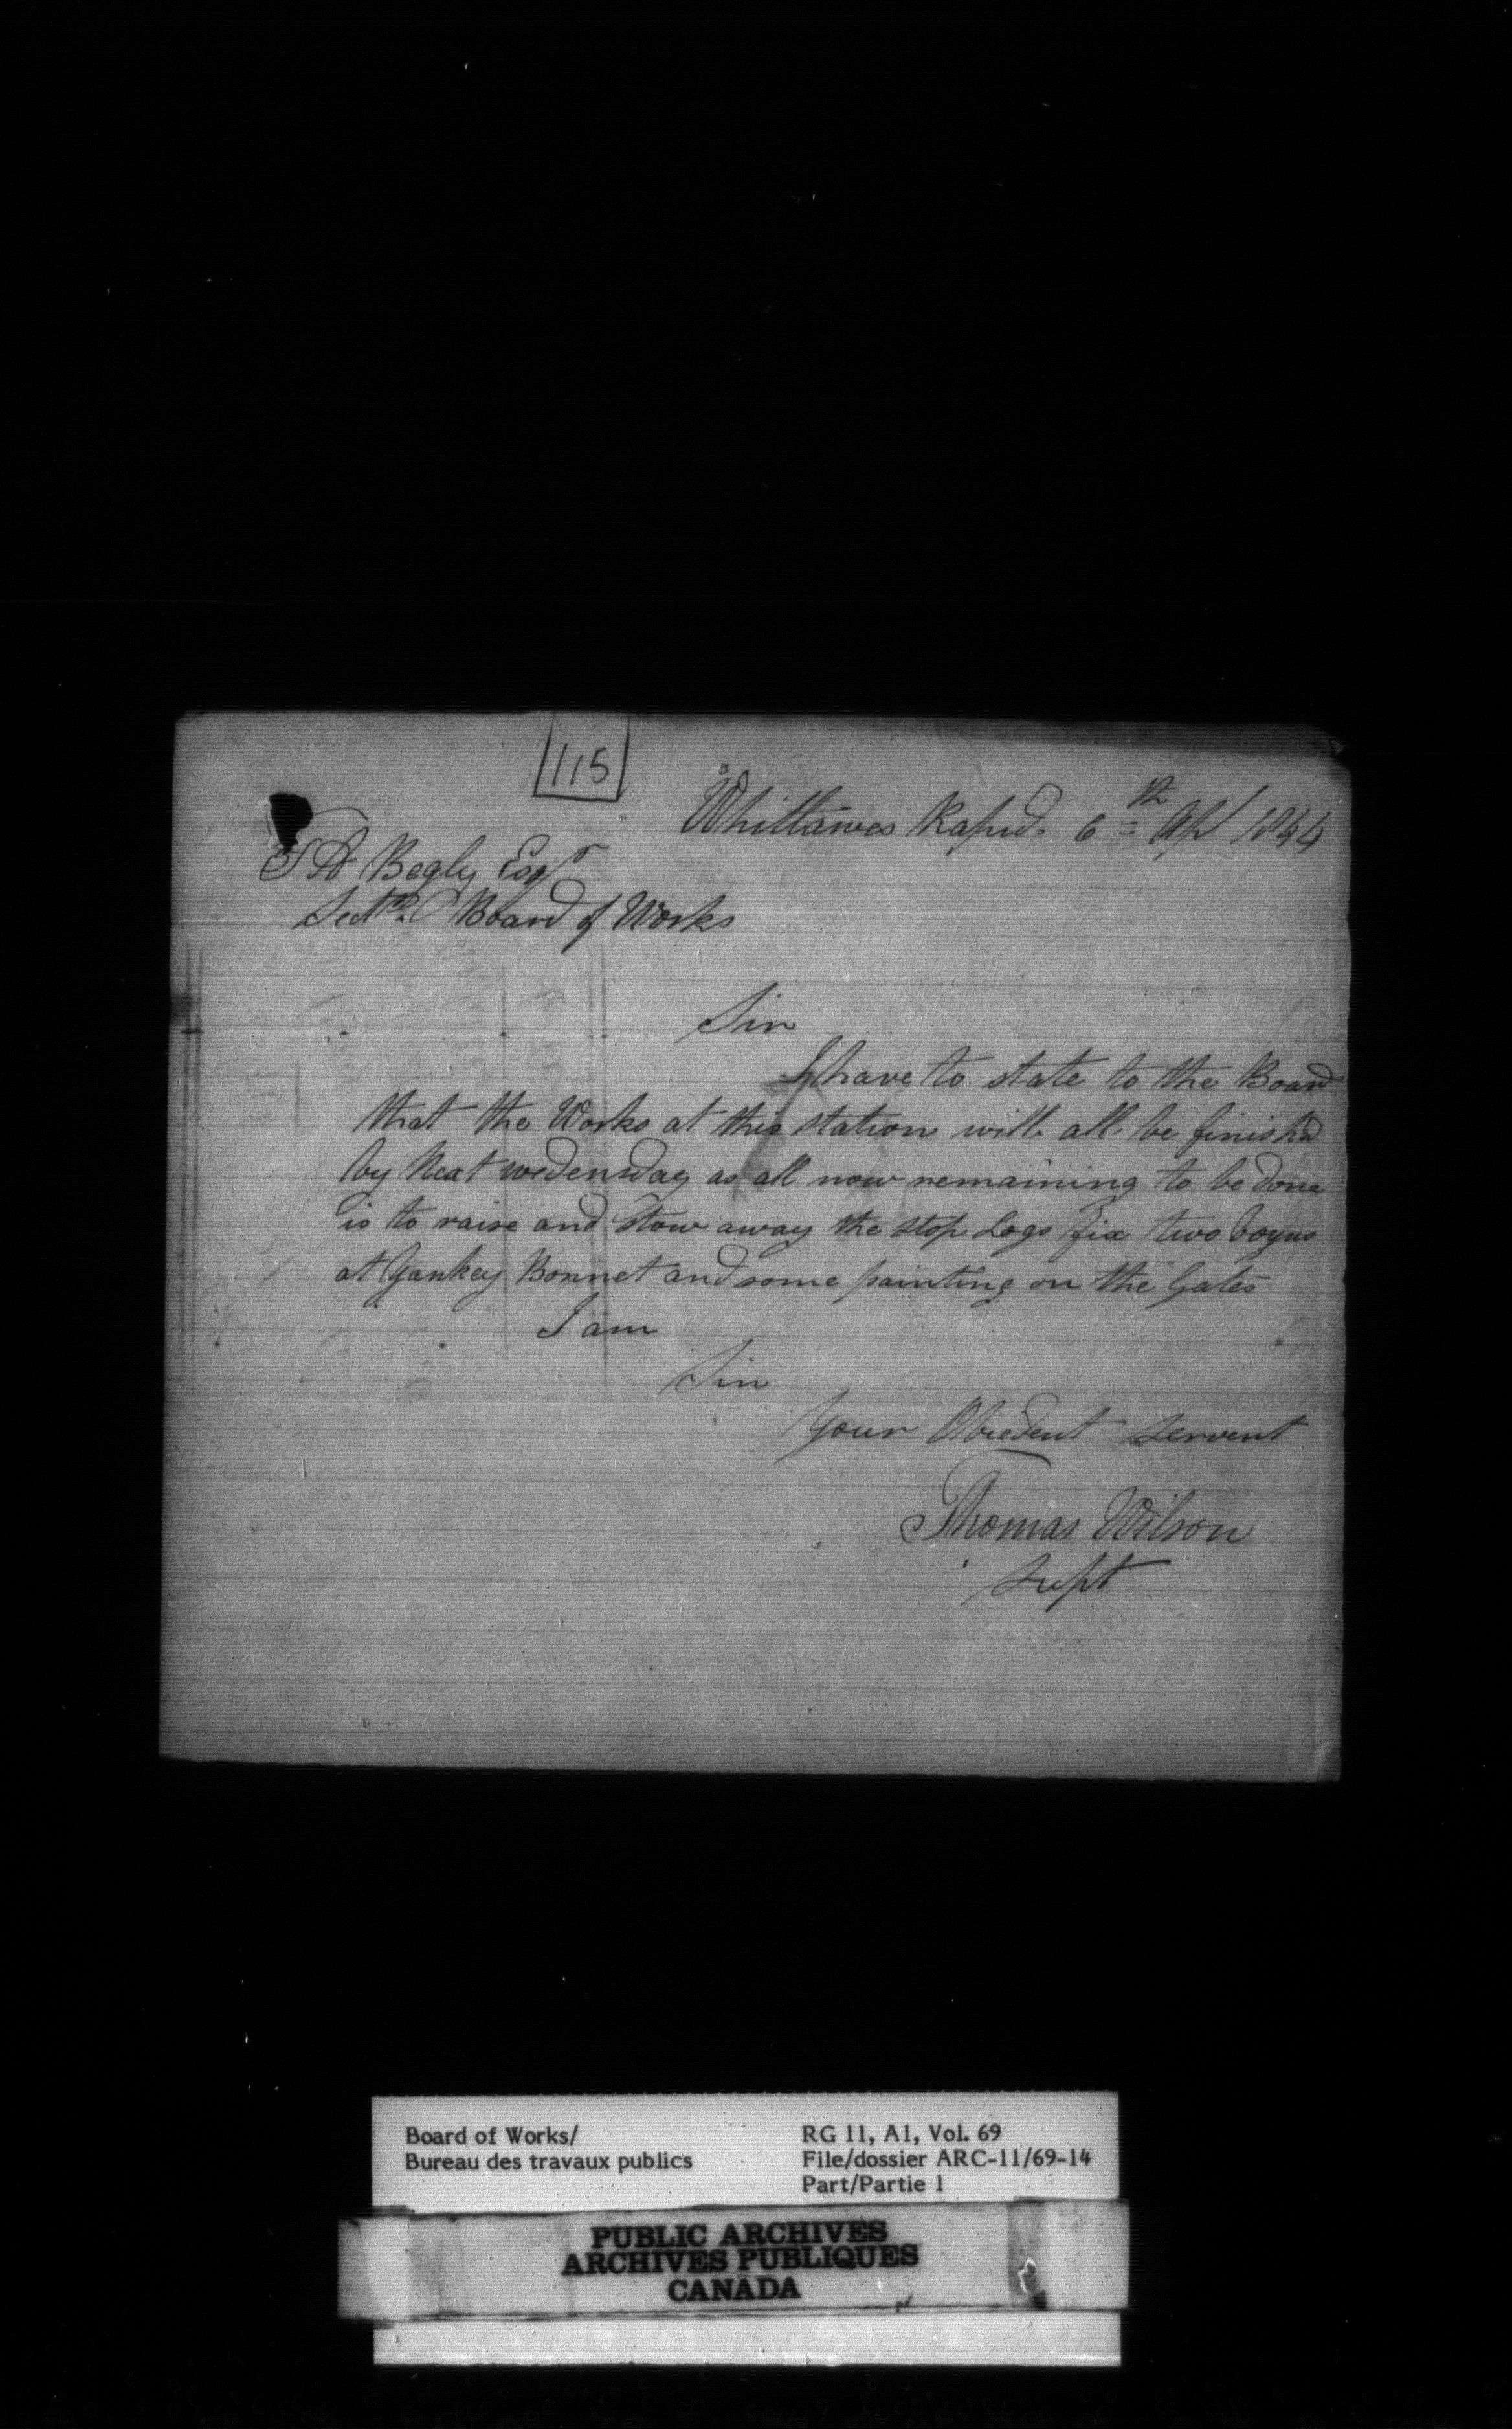 115
Whittaws Rapid. 6th Apl 1844
T A Begly Esqr
Secty. Board of Works
Sir
I have to state to the Board
that the Works at this station will all be finishd
by Next wedensday as all now remaining to be done
is to raise and stow away the stop Logs fix two boyus
at Yankey Bonnet and some painting on the Gates
I am
Sir
Your Obiedent servent
Thomas Wilson
Supt
Board of Works/
Bureau des travaux publics
RG 11, A1, Vol. 69
File/dossier ARC-11/69-14
Part/Partie 1
PUBLIC ARCHIVES
ARCHIVES PUBLIQUES
CANADA